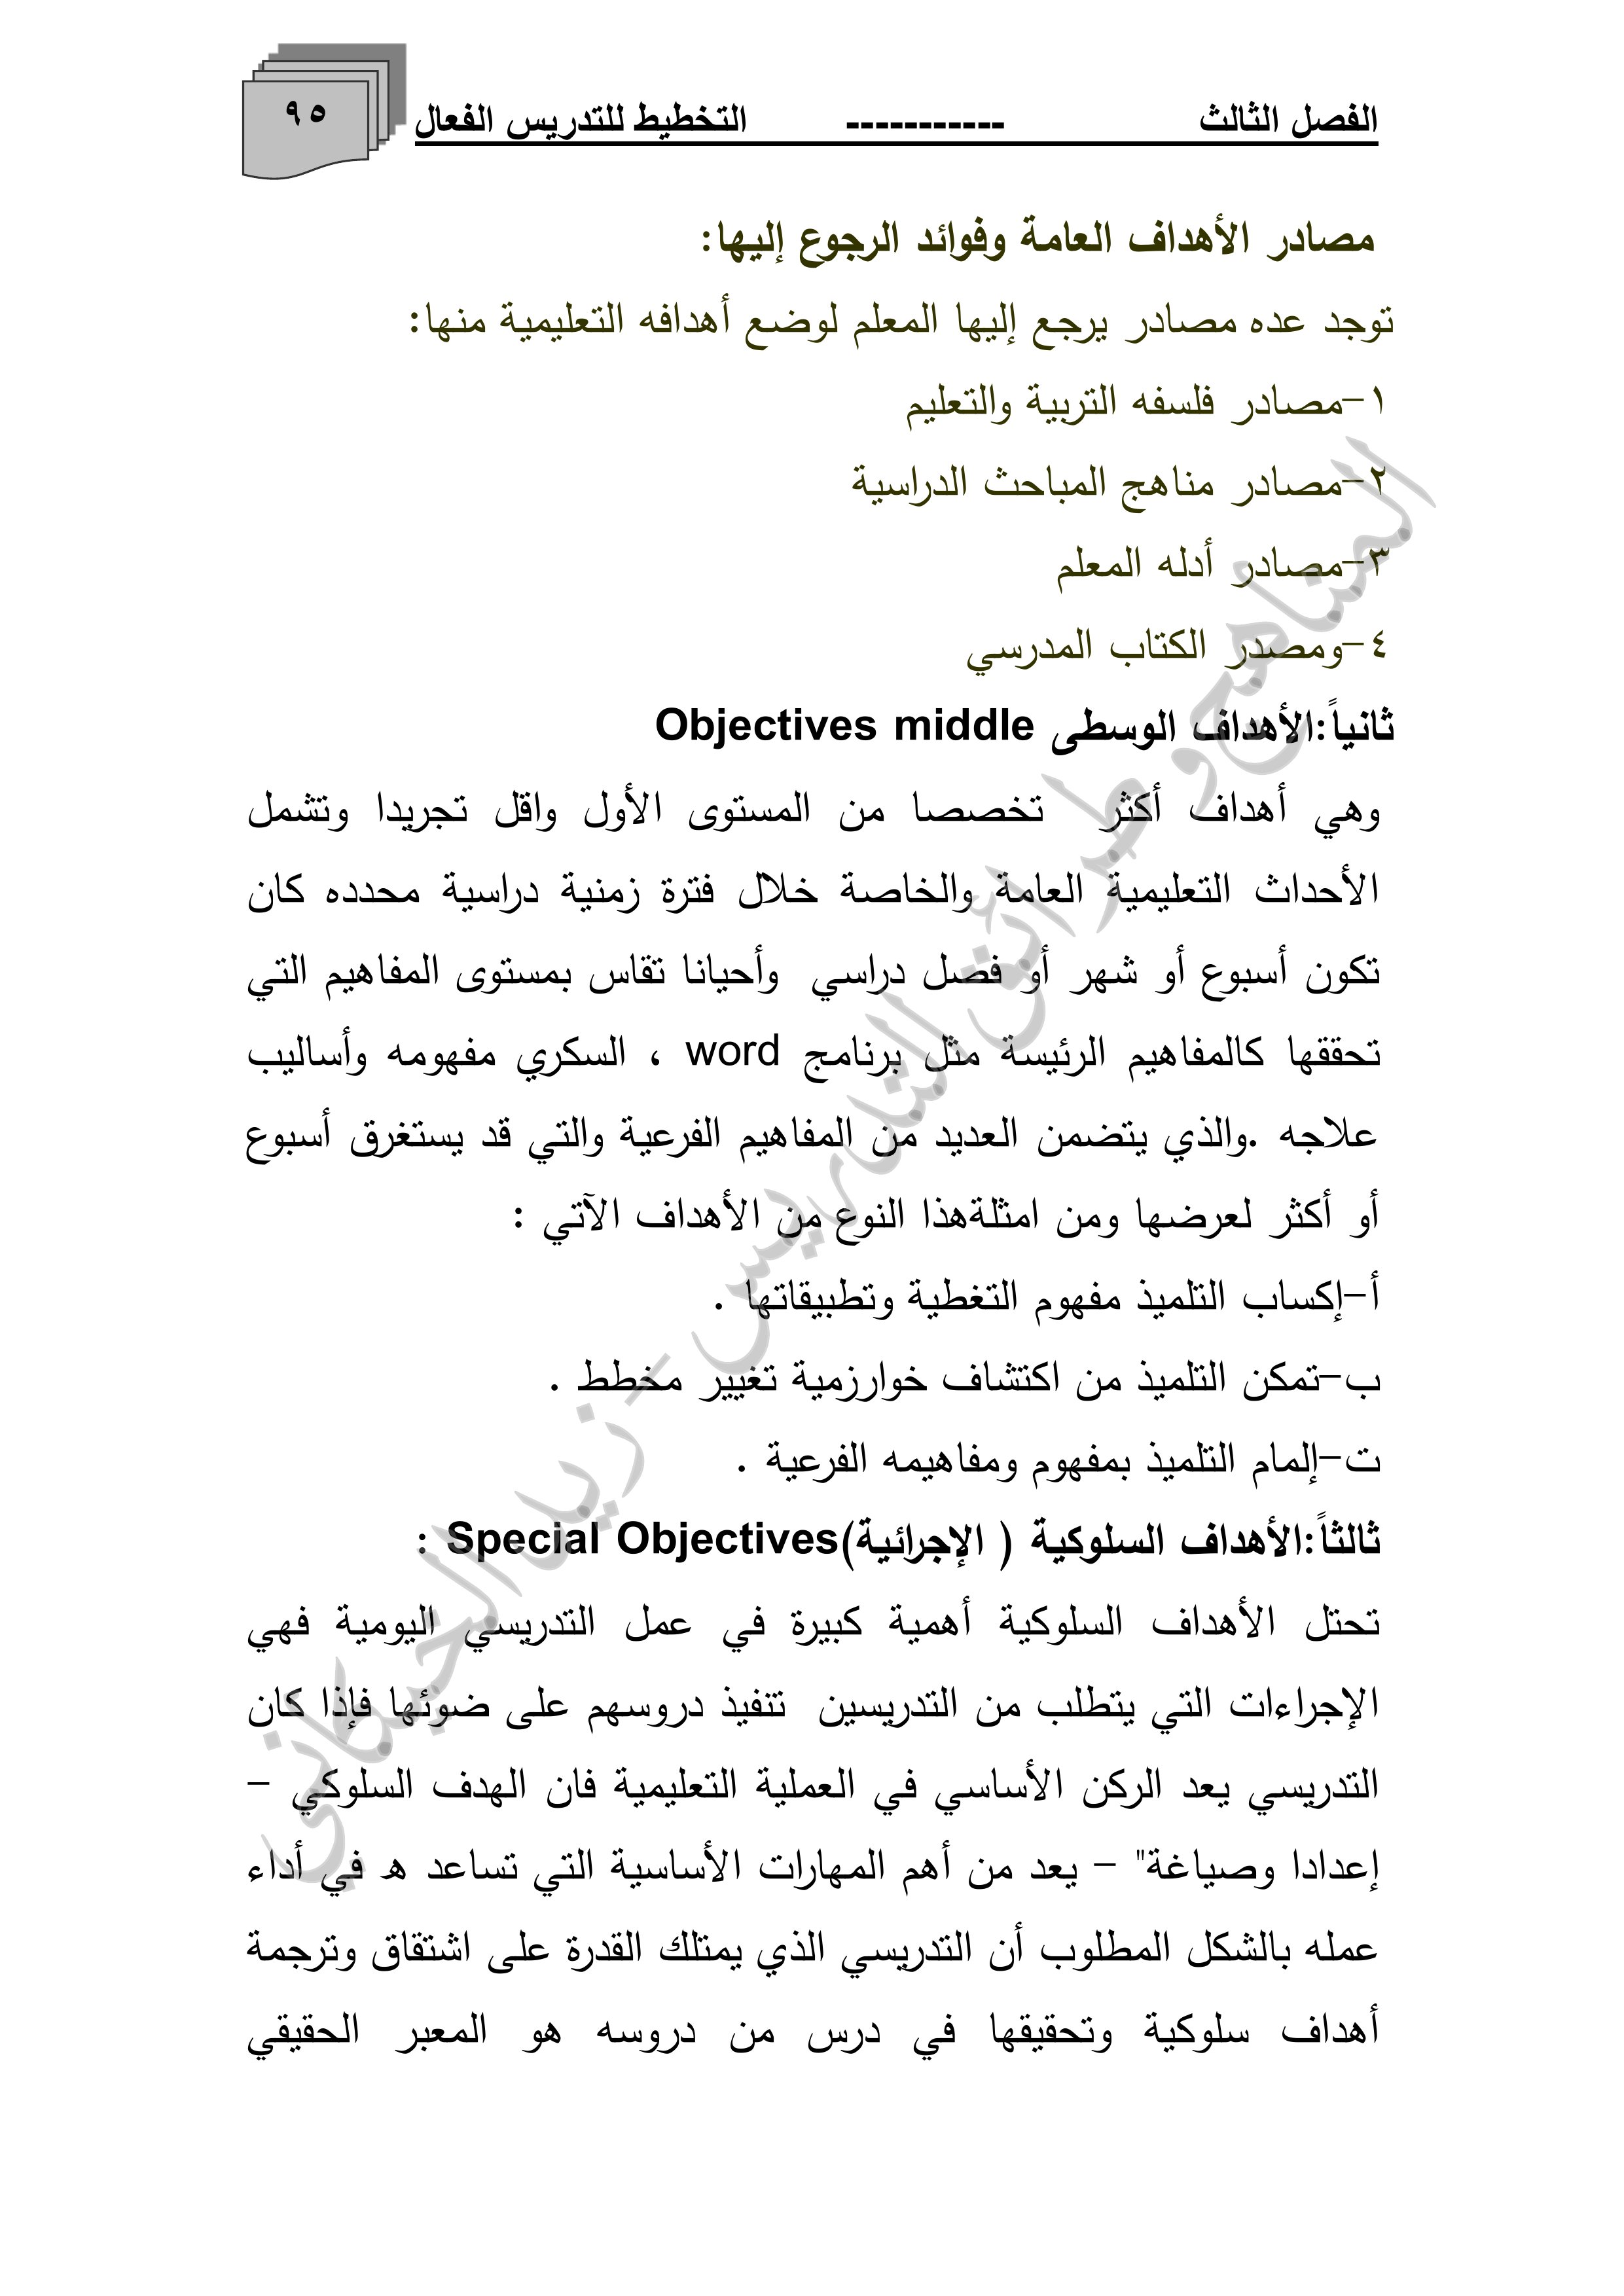 الفصل الثالث ----------- التخطيط للتدريس الفعال
٩٥
مصادر الأهداف العامة وفوائد الرجوع إليها:
توجد عده مصادر يرجع إليها المعلم لوضع أهدافه التعليمية منها:
١-مصادر فلسفه التربية والتعليم
٢-مصادر مناهج المباحث الدراسية
٣-مصادر أدله المعلم
٤-ومصدر الكتاب المدرسي
ثانياً:الأهداف الوسطى Objectives middle
وهي أهداف أكثر تخصصا من المستوى الأول واقل تجريدا وتشمل
الأحداث التعليمية العامة والخاصة خلال فترة زمنية دراسية محدده كان
تكون أسبوع أو شهر أو فصل دراسي وأحيانا تقاس بمستوى المفاهيم التي
تحققها كالمفاهيم الرئيسة مثل برنامج word ، السكري مفهومه وأساليب
علاجه .والذي يتضمن العديد من المفاهيم الفرعية والتي قد يستغرق أسبوع
أو أكثر لعرضها ومن امثلةهذا النوع من الأهداف الآتي :
أ-إكساب التلميذ مفهوم التغطية وتطبيقاتها .
ب-تمكن التلميذ من اكتشاف خوارزمية تغيير مخطط .
ت-إلمام التلميذ بمفهوم ومفاهيمه الفرعية .
ثالثاً:الأهداف السلوكية ( الإجرائية)Special Objectives :
تحتل الأهداف السلوكية أهمية كبيرة في عمل التدريسي اليومية فهي
الإجراءات التي يتطلب من التدريسين تتفيذ دروسهم على ضوئها فإذا كان
التدريسي يعد الركن الأساسي في العملية التعليمية فان الهدف السلوكي –
إعدادا وصياغة" – يعد من أهم المهارات الأساسية التي تساعد ه في أداء
عمله بالشكل المطلوب أن التدريسي الذي يمتلك القدرة على اشتقاق وترجمة
أهداف سلوكية وتحقيقها في درس من دروسه هو المعبر الحقيقي
المناهج و طرائق التدريس - زيد الخيكاني